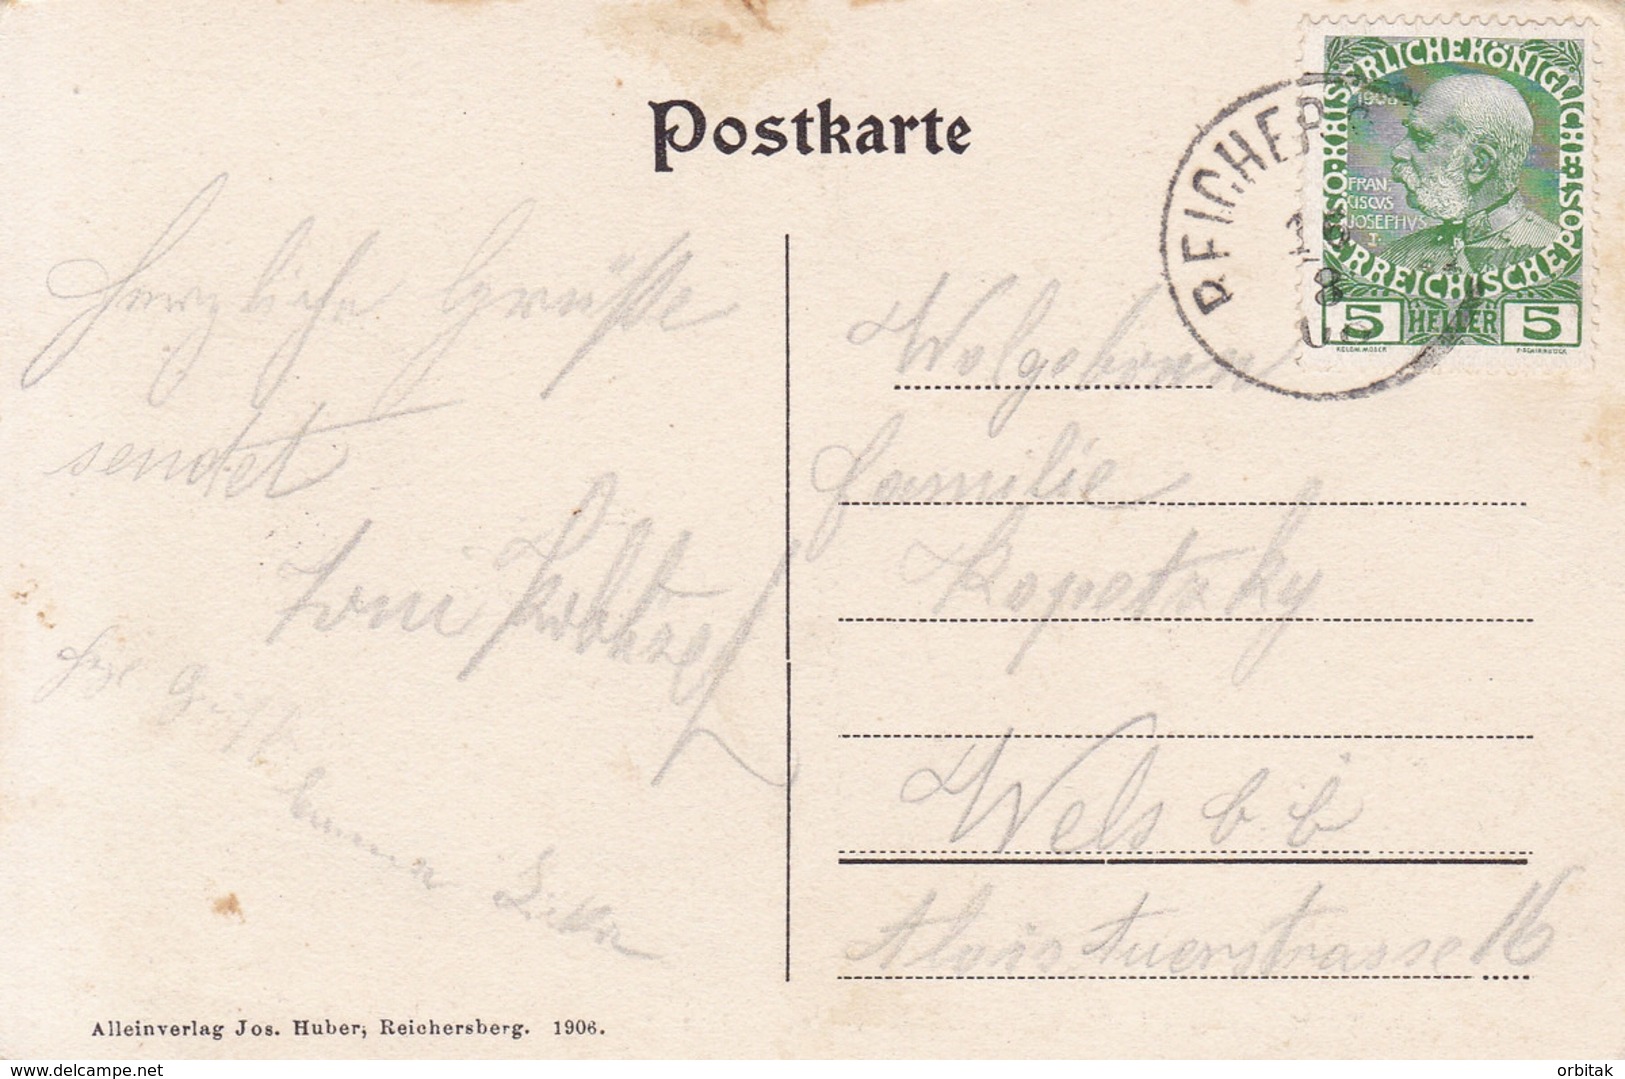 Postkarte
KAISERLICHE KÖNIGLICHE ÖSTERREICHISCHE POST
1908
FRAN,
CISCVS
JOSEPHVS
I.
5 HELLER 5
REICHERS
8
Herzliche Grüße
sendet
Toni
Wolgeboren
Familie
Kopetzky
Wels
Alois Auerstrasse 16
Emma
Alleinverlag Jos. Huber, Reichersberg. 1906.
www.delcampe.net
orbitak